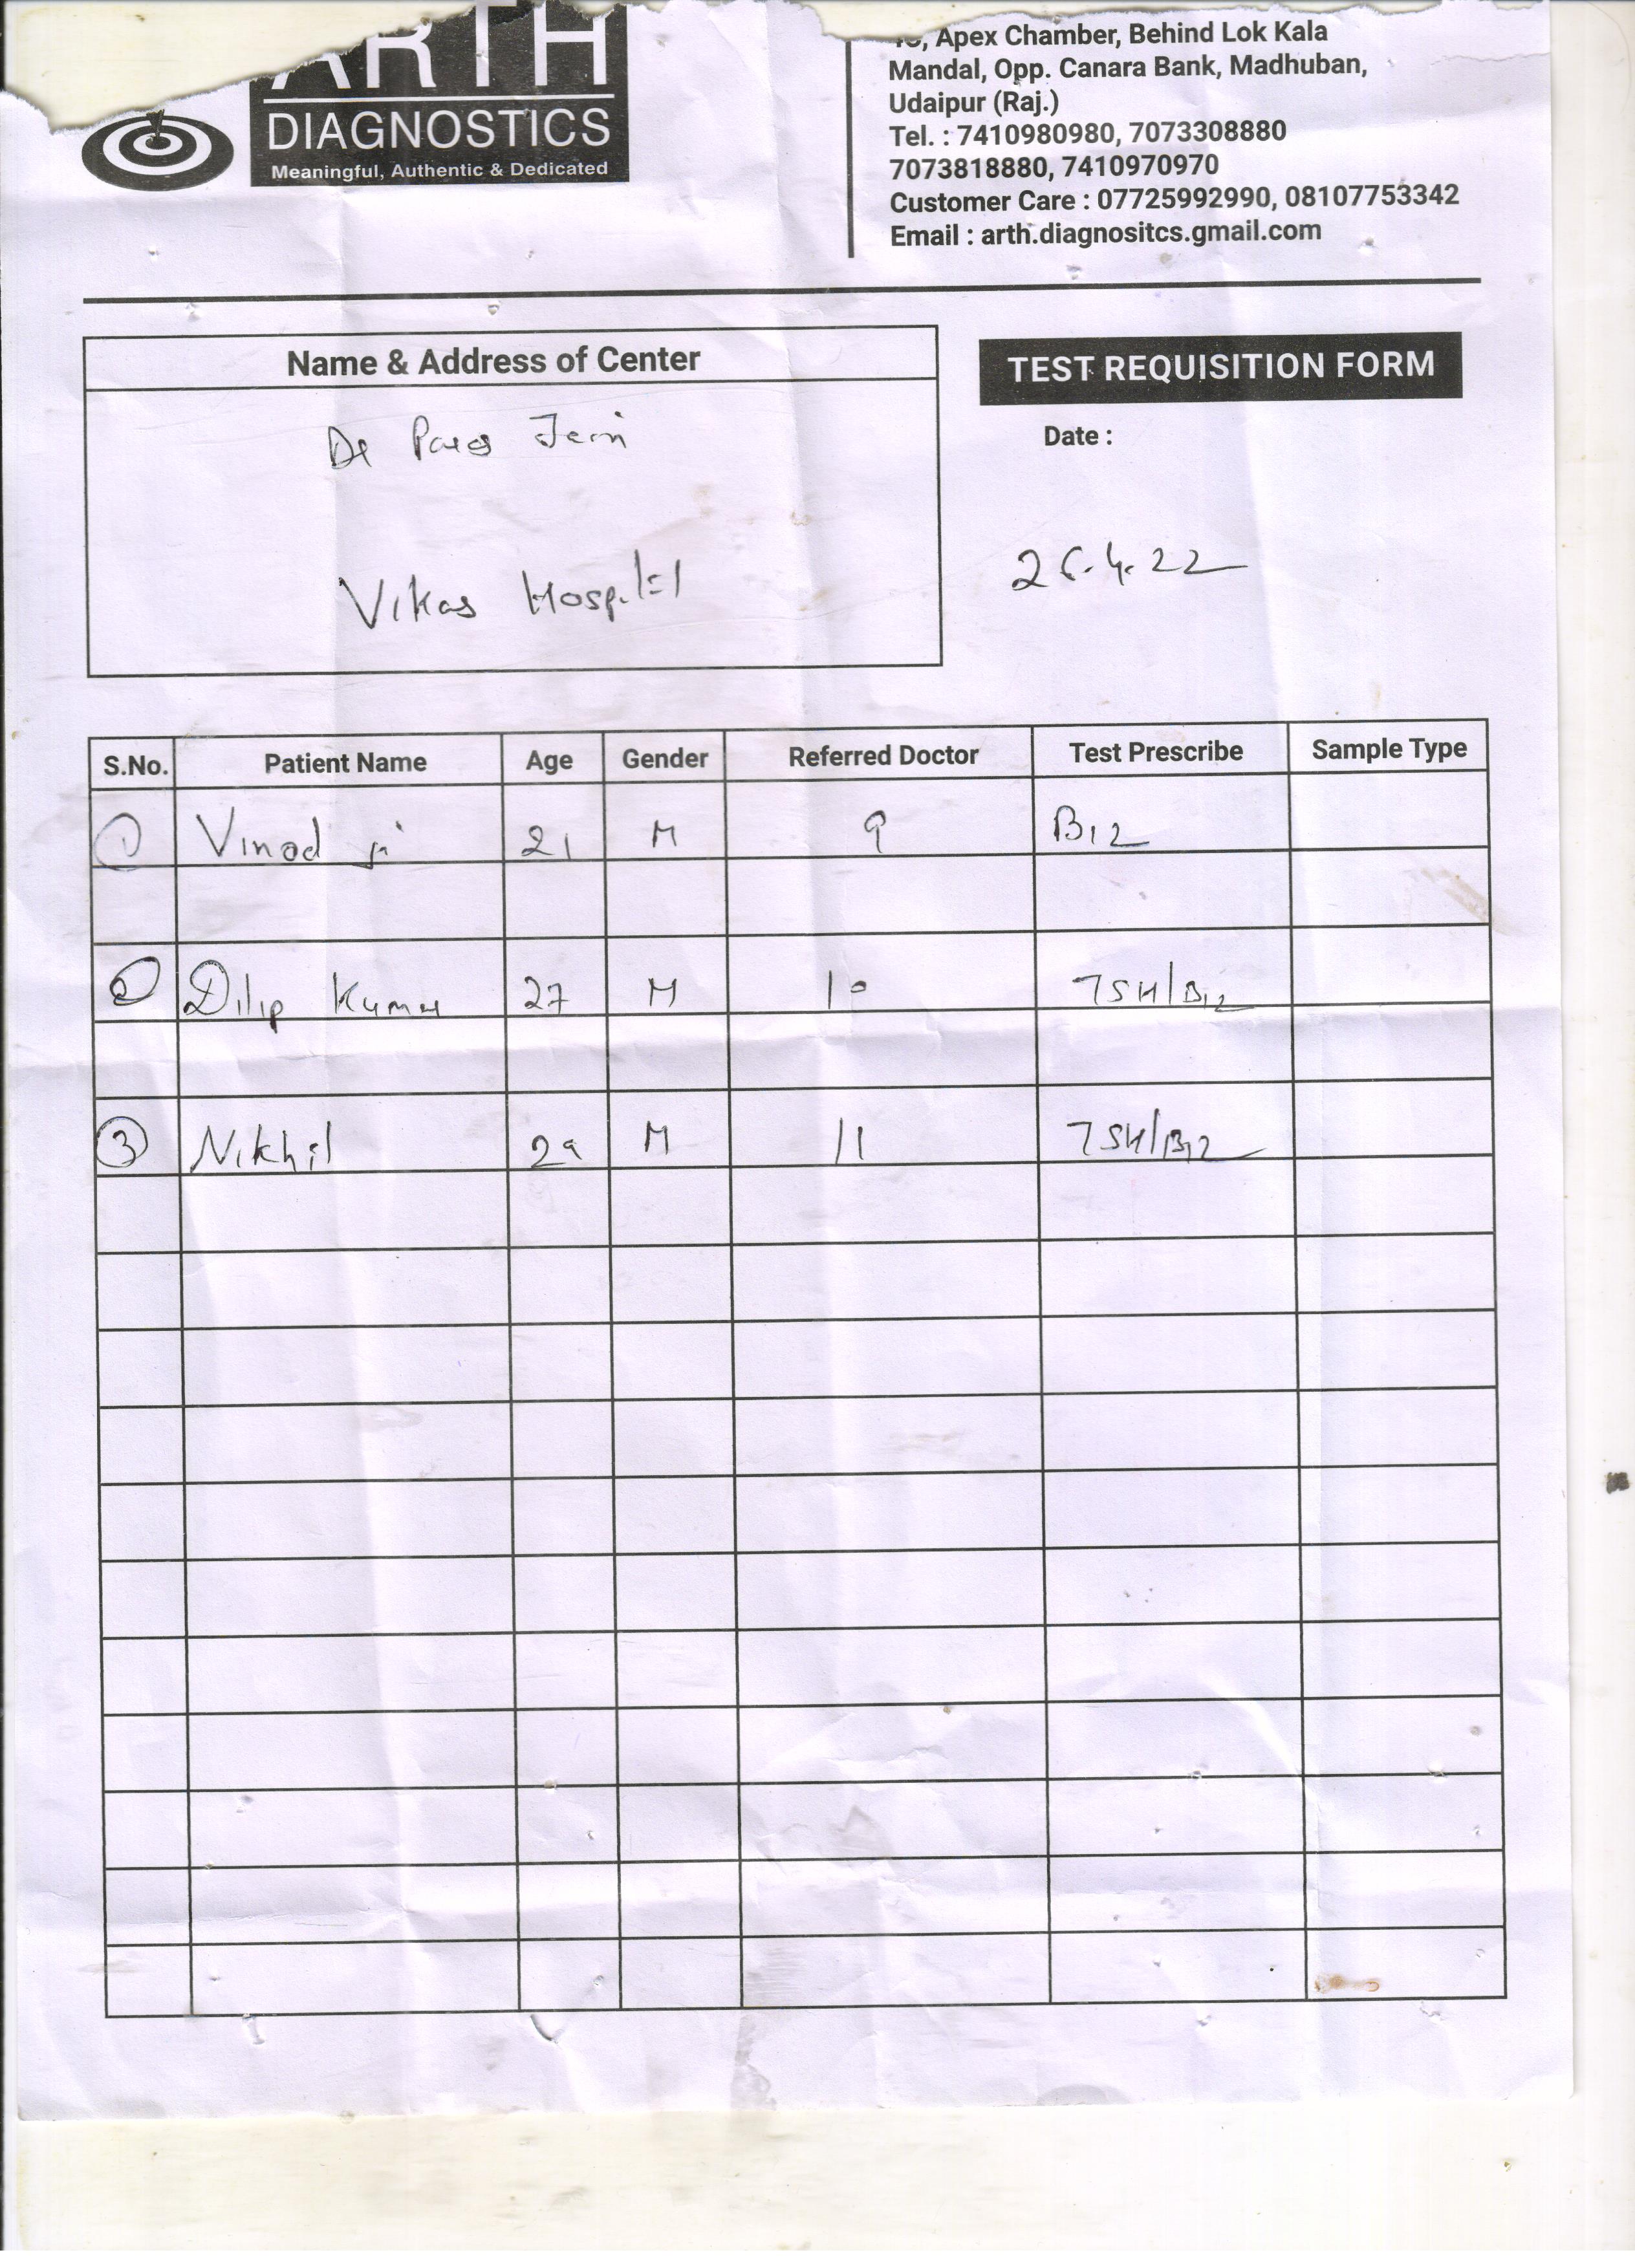 ARTH
DIAGNOSTICS
Meaningful, Authentic & Dedicated
Apex Chamber, Behind Lok Kala
Mandal, Opp. Canara Bank, Madhuban,
Udaipur (Raj.)
Tel. : 7410980980, 7073308880
7073818880, 7410970970
Customer Care : 07725992990, 08107753342
Email : arth.diagnositcs.gmail.com
Name & Address of Center
TEST REQUISITION FORM
Date :
Dr Paras Jain
26.4.22
Vikas Hospital
S.No. Patient Name Age Gender Referred Doctor Test Prescribe Sample Type
1 Vinod ji 21 M 9 B12
2 Dilip Kumar 27 M 10 TSH/B12
3 Nikhil 29 M 11 TSH/B12